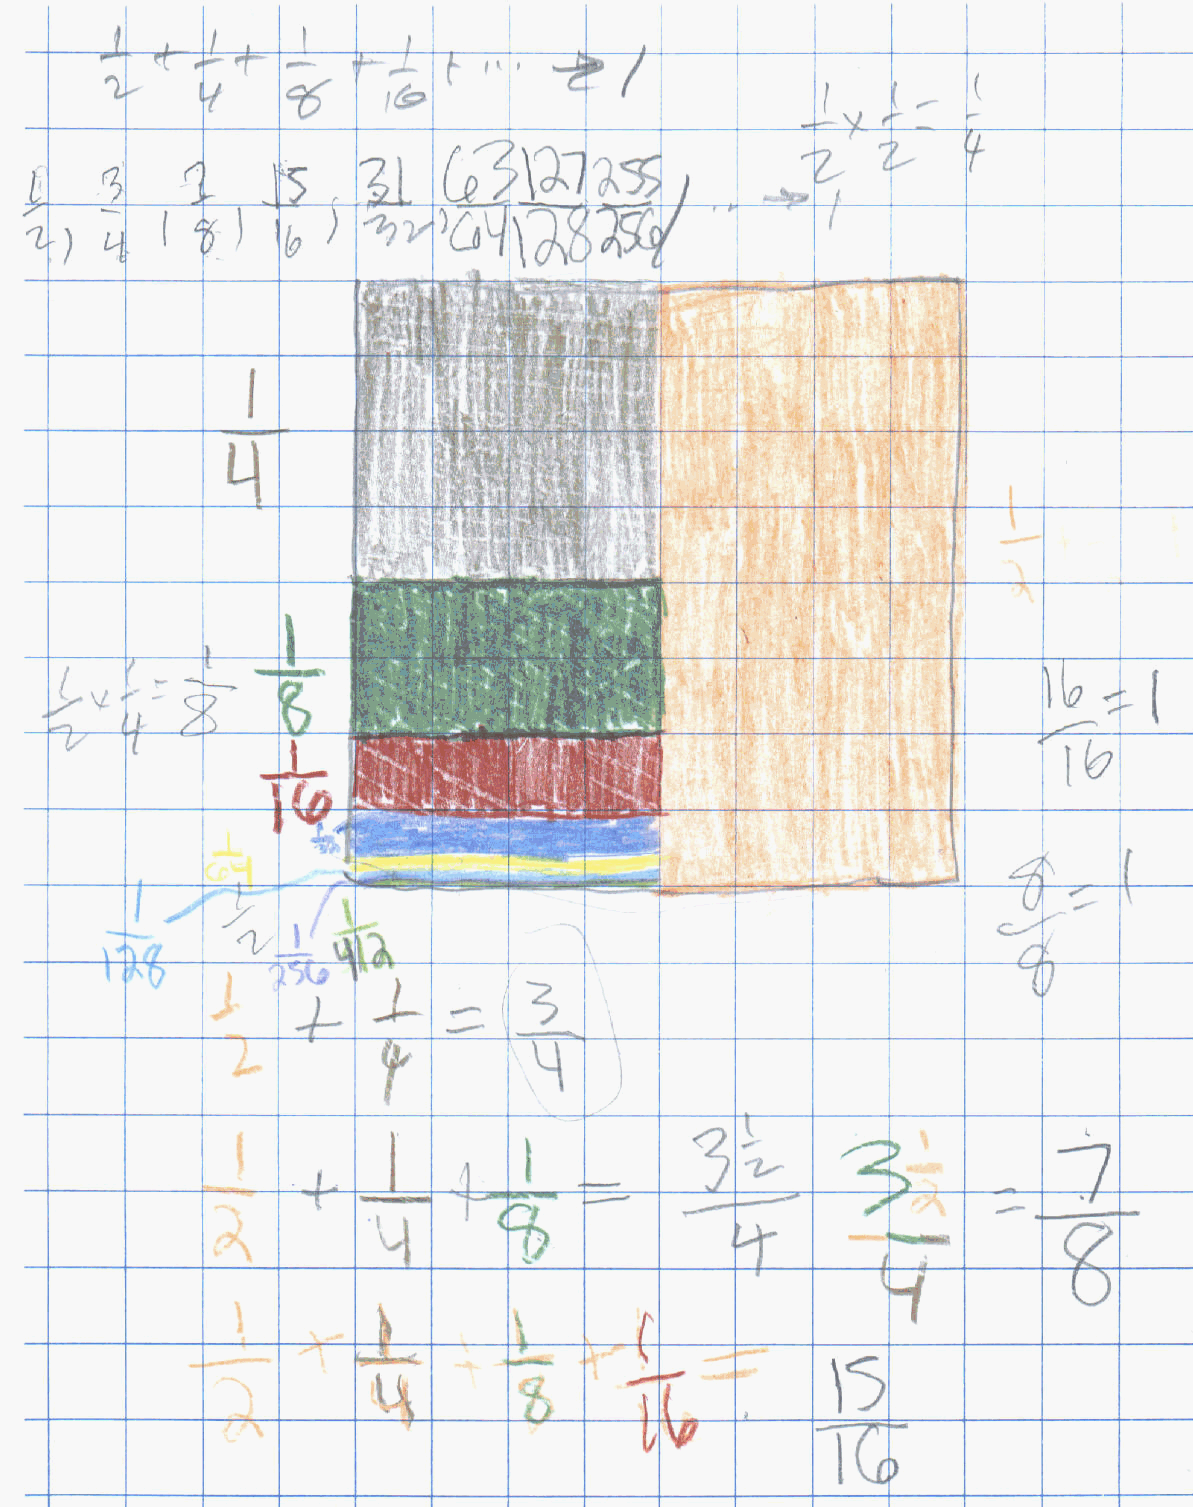 1/2 + 1/4 + 1/8 + 1/16 + ... → 1
1/2 × 1/2 = 1/4
1/2, 3/4, 7/8, 15/16, 31/32, 63/64, 127/128, 255/256, ... → 1
1/4
1/2
1/8
1/2 × 1/4 = 1/8
16/16 = 1
1/16
1/32
1/64
8/8 = 1
1/128
1/2
1/256
1/412
1/2 + 1/4 = 3/4
1/2 + 1/4 + 1/8 = 3 1/2/4 3 1/2/4 = 7/8
1/2 + 1/4 + 1/8 + 1/16 = 15/16